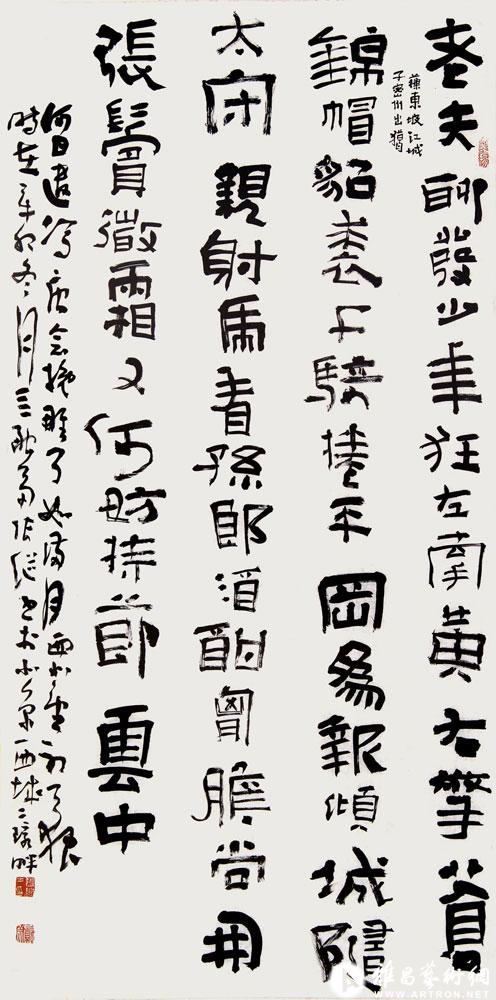 老夫聊發少年狂左牽黃右擎蒼
蘇東坡江城
子密州出獵
錦帽貂裘千騎捲平岡為報傾城隨
太守親射虎看孫郎酒酣胸膽尚開
張鬢微霜又何妨持節雲中
何日遣馮唐會挽雕弓如滿月西北望射天狼
時在辛卯冬月張继書於北京西城二環畔
雅昌藝術網
WWW.ARTRON.NET